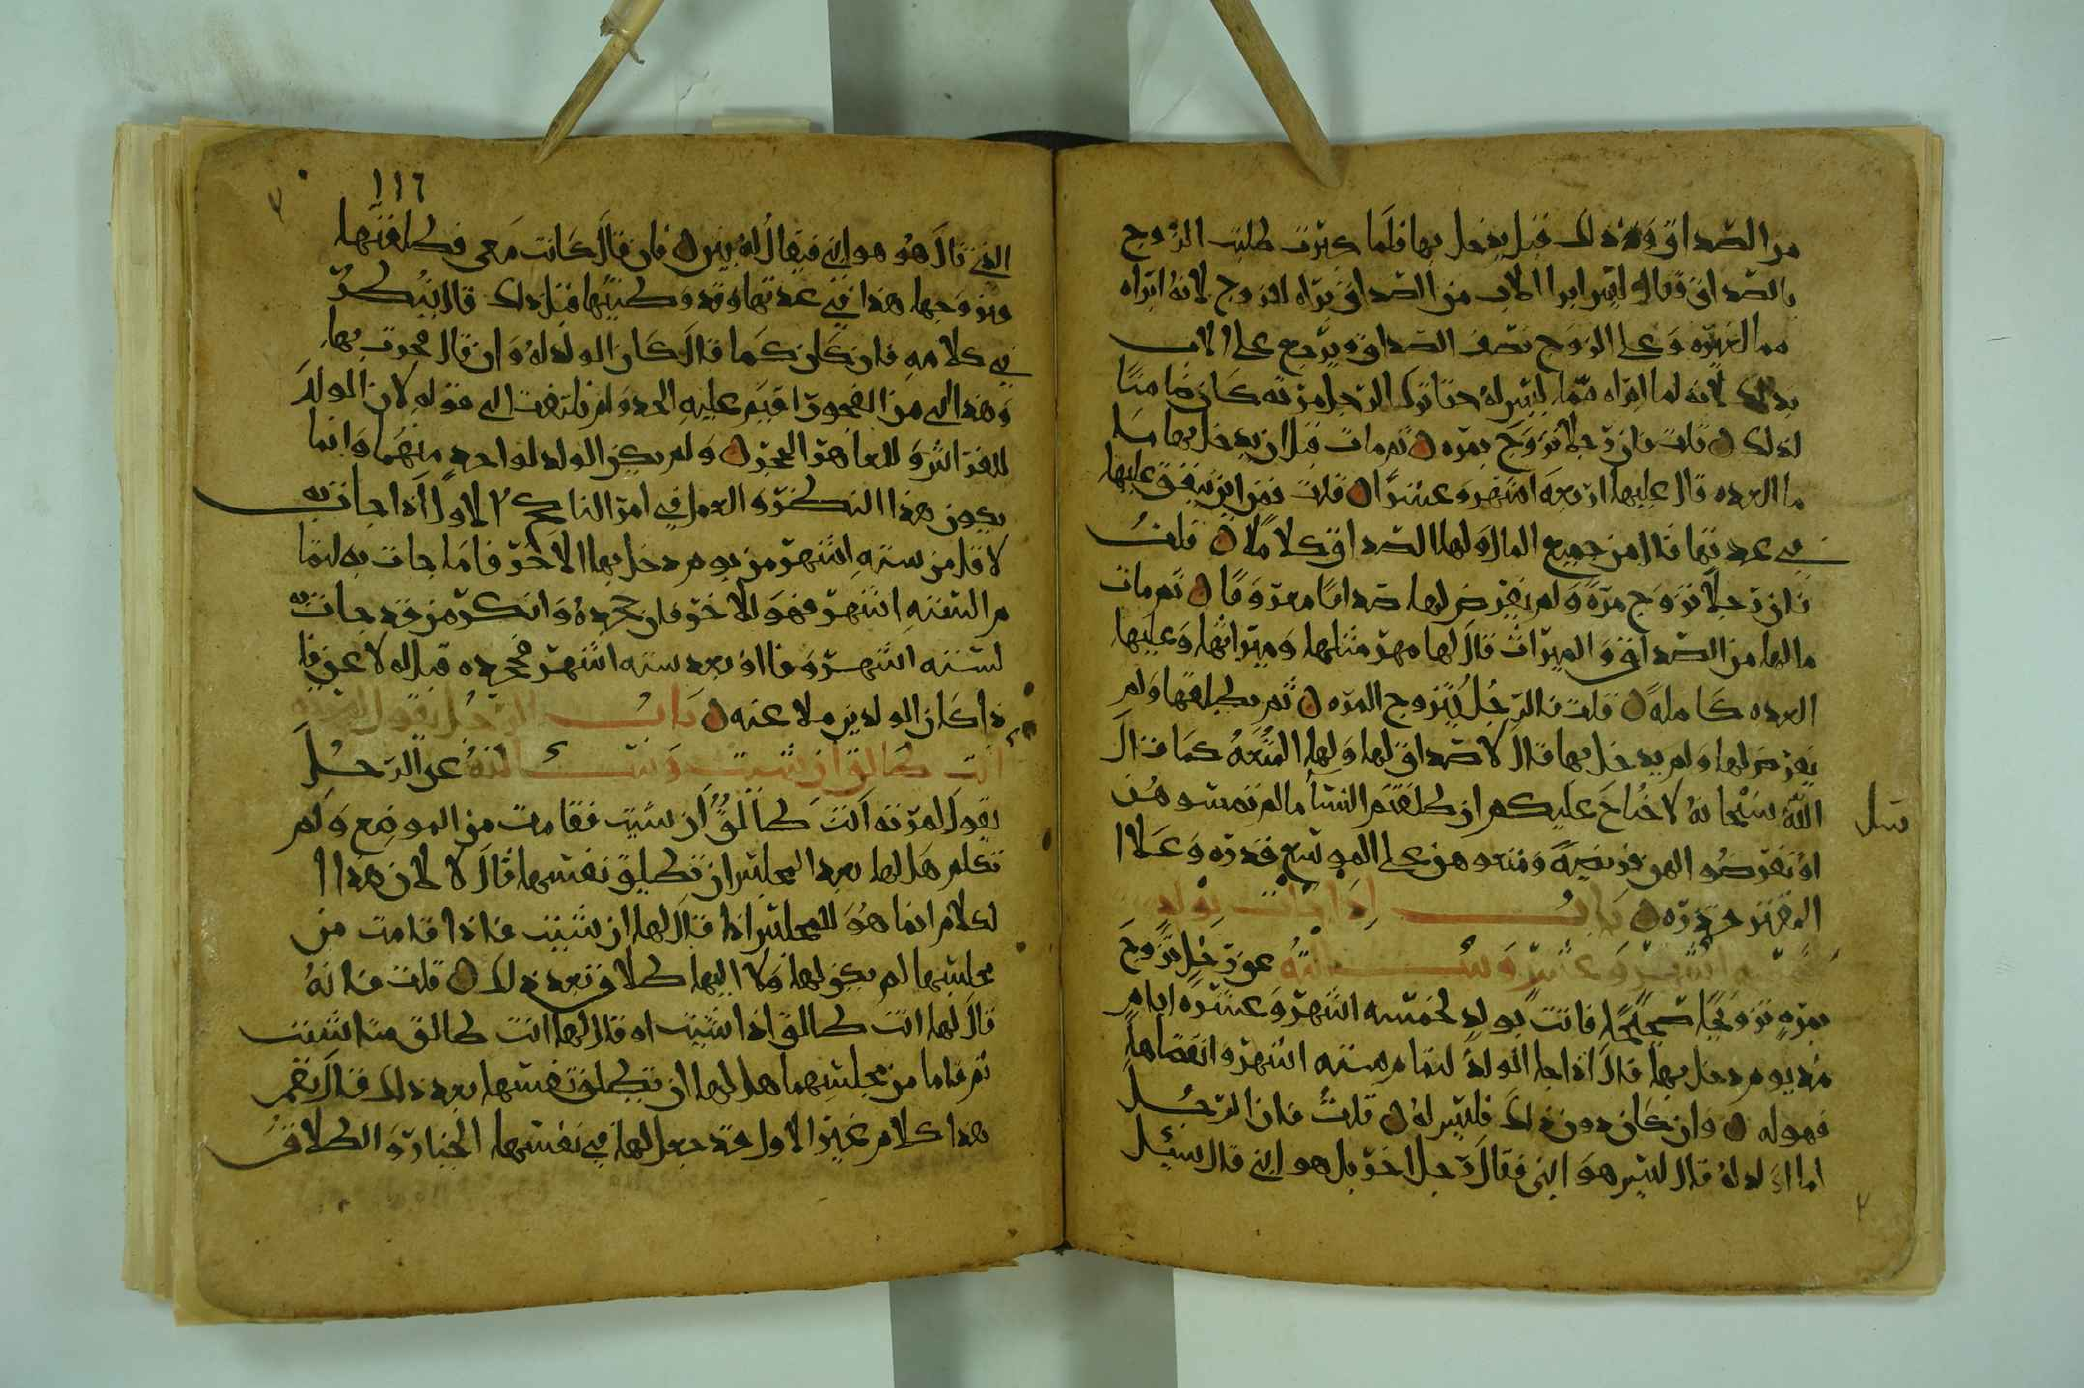 من الصداق وذلك قبل يدخل بها فلما كبرت طلبت الزوج
بالصداق فقال ليس ابرا الاب من الصداق براه للزوج لانه ابراه
مما لغيره وعلى الزوج نصف الصداق ويرجع على الاب
بذلك لانه لما ابراه مما ليس له حتا ترك الرجل مرته كان ضامنا
لذلك ن قلت فان رجلا تزوج بمره ن ثم مات قبل ان يدخل بها
ما العده قال عليها اربعه اشهر وعشرا ن قلت فمن اين ينفق عليها
في عدتها قال من جميع المال ولها الصداق كلاملا ن قلت
فان رجلا تزوج مره ولم يفرض لها صداقا معروفا ن ثم مات
ما لها من الصداق والميراث قال لها مهر مثلها وميراثها وعليها
العده كامله ن قلت فالرجل يتزوج المره ن ثم يطلقها ولم
يفرض لها ولم يدخل بها قال لا صداق لها ولها المتعه كما قال
الله سبحانه لا جناح عليكم ان طلقتم النسا ما لم تمسوهن
او تفرضوا لهن فريضه ومتعوهن على الموسع قدره وعلا ا
لمقتر قدره ن باب اذا جات بولد
لخمسه اشهر وعشر وسالته عن رجل تزوج
بمره تزويجا صحيحا فاتت بولد لخمسه اشهر وعشره ايام
مذ يوم دخل بها قال اذا جا الولد لتمام سته اشهر وانقضاها
فهو له ن وان كان دون ذلك فليس له ن قلت فان الرجل
اما الذ لد له قال ليس هو ابني فقال رجل اخر بل هو ابني قال سيل
١١٦
الذي قال هو هو ابني فيقال له بين ن فان قال كانت معي فطلقتها
وتزوجها هذا في عدتها وقد وطيتها قبل ذلك قال ينظر
في كلامه فان كان كما قال كان الولد له وان قال فجرت بها
وهذا لي من الفجور اقيم عليه الحد ولم يلتفت الى قوله لان المولد
للفراش وللعاهر الحجر ن ولم يكن الولد لواحد منهما وانما
يكون هذا النظر والعمل في امر الناكح الاول اذا جات به
لاقل من سته اشهر من يوم دخل بها الاخر فاما جات به لتما
م الستته اشهر فهو للاخر فان جحده وانكره من قد جات به
لسته اشهر وفا او بعد سته اشهر فجحده قيل له لاعن فا
ذا كان الولد يزم لاعنه ن باب الرجل يقول لمرته
انت طالق ان شيت وسالته عن الرجل
يقول لمرته انت طالق ان شيت فقامت من الموضع ولم
تكلم هل لها بعد المجلس ان تطليق نفسها قال لا لان هذا ا
لكلام انما هو للمجلس اذا قال لها ان شيت فاذا قامت من
مجلسها لم يكن لها ولا اليها طلاق بعد ذلك ن قلت فانه
قال لها انت طالق اذا شيت او قال لها انت طالق متا شيت
ثم قاما من مجلسهما هل لها ان تطلق نفسها بعد ذلك قال نعم
هذا كلام غير الاول قد جعل لها في نفسها الخيار والطلاق